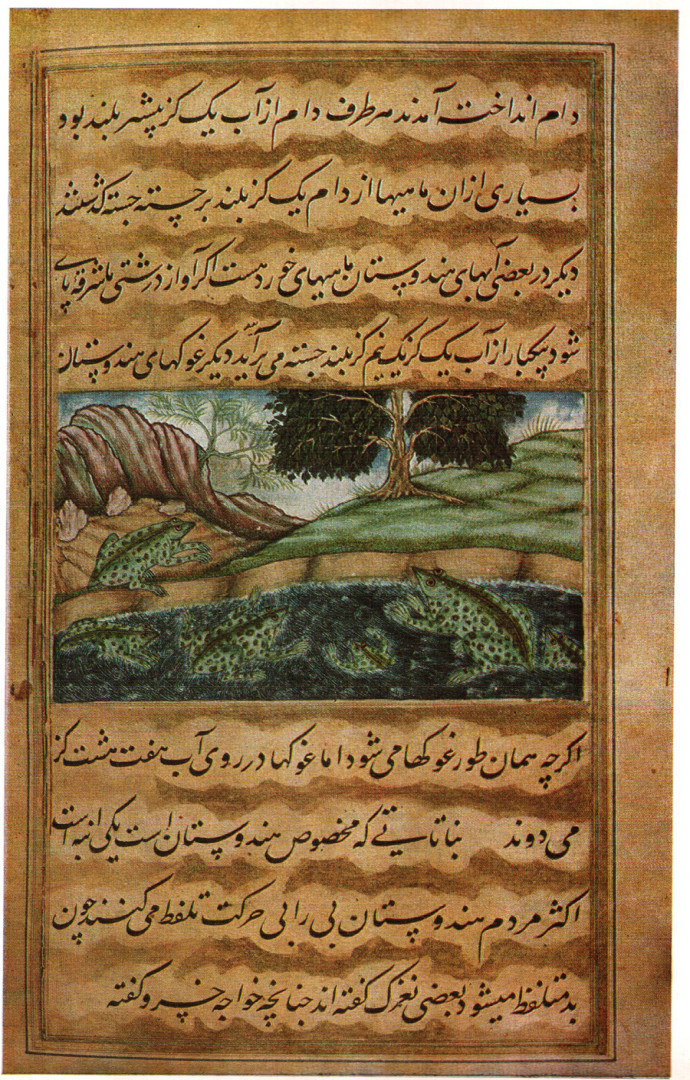 دام انداخته آمدند هر طرف دام از آب یک گز بیشتر بلند بود
بسیاری ازان ماهیها از دام یک گز بلند برجسته جسته گذشتند
دیگر در بعضی آبهای هندوستان ماهیهای خورد هست اگر آواز درشتی یا شرفه پای
شود بیکبار از آب یک گز یک نیم گز بلند جسته می برآید دیگر غوکهای هندوستان
اگرچه همان طور غوکها می شود اما غوکها در روی آب هفت هشت گز
می دوند نباتاتی که مخصوص هندوستان است یکی انبه است
اکثر مردم هندوستان بی را بی حرکت تلفظ می کنند چون
بد متلفظ میشود بعضی نغزک گفته اند چنانچه خواجه خسرو گفته